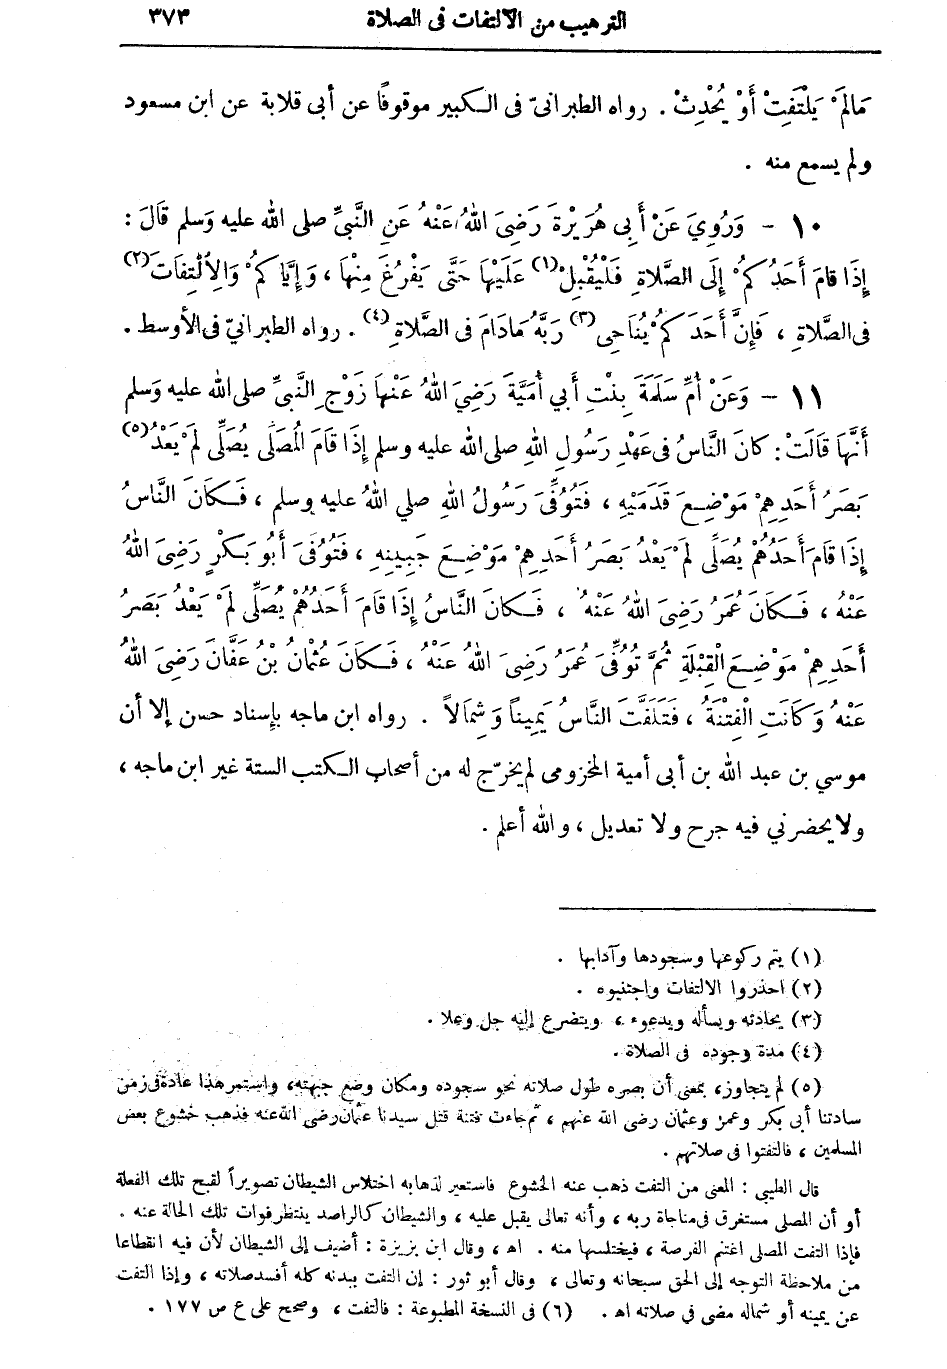 الترهيب من الالتفات فى الصلاة ٣٧٣
مَالَمْ يَلْتَفِتْ أَوْ يُحْدِثْ . رواه الطبرانىّ فى الـكبير موقوفًا عن أبى قلابة عن ابن مسعود
ولم يسمع منه .
١٠ – وَرُوِيَ عَنْ أَبِى هُرَيْرةَ رَضِىَ اللهُ عَنْهُ عَنِ النَّبِىِّ صلى الله عليه وَسلم قَالَ :
إِذَا قامَ أَحَدُكمُ إِلَى الصَّلاةِ فَلْيُقْبِلْ(١) عَلَيْهَا حَتَّى يَفْرُغَ مِنْهَا ، وَإِيَّاكمُ وَالِالْتِفَاتَ(٢)
فى الصَّلاةِ ، فَإِنَّ أَحَدَكمُ يُنَاجِى(٣) رَبَّهُ مَادَامَ فى الصَّلاةِ(٤) . رواه الطبرانىّ فى الأوسط .
١١ – وَعَنْ أُمِّ سَلَمَةَ بِنْتِ أَبي أُمَيَّةَ رَضِيَ اللهُ عَنْهَا زَوْجِ النَّبىِّ صلى الله عليه وَسلم
أَنَّهَا قَالَتْ : كانَ النَّاسُ فى عَهْدِ رَسُولِ اللهِ صلى الله عليه وسلم إِذَا قَامَ الْمُصَلِّى يُصَلِّى لَمْ يَعْدُ(٥)
بَصَرُ أَحَدِهِمْ مَوْضِعَ قَدَمَيْهِ ، فَتُوُفِّىَ رَسُولُ اللهِ صلي اللهُ عليه وسلم ، فَـكَانَ النَّاسُ
إِذَا قَامَ أَحَدُهُمْ يُصَلِّى لَمْ يَعْدُ بَصَرُ أَحَدِهِمْ مَوْضِعَ جَبِينِهِ ، فَتُوُفِّىَ أَبُو بَكْرٍ رَضِىَ اللهُ
عَنْهُ ، فَـكَانَ عُمَرُ رَضِىَ اللهُ عَنْهُ ، فَـكَانَ النَّاسُ إِذَا قَامَ أَحَدُهُمْ يُصَلِّى لَمْ يَعْدُ بَصَرُ
أَحَدِهِمْ مَوْضِعَ الْقِبْلَةِ ثُمَّ تُوُفِّىَ عُمَرُ رَضِىَ اللهُ عَنْهُ ، فَـكَانَ عُثْمَانُ بْنُ عَفَّانَ رَضِىَ اللهُ
عَنْهُ وَكَانَتِ الْفِتْنَةُ ، فَتَلَفَّتَ النَّاسُ يَمِيناً وَشِمَالاً . رواه ابن ماجه بإسناد حسن إلا أن
موسي بن عبد الله بن أبى أمية المخزومى لم يخرّج له من أصحاب الـكتب الستة غير ابن ماجه ،
ولا يحضرني فيه جرح ولا تعديل ، والله أعلم .
(١) يتم ركوعها وسجودها وآدابها .
(٢) احذروا الالتفات واجتنبوه .
(٣) يحادثه ويسأله ويدعوه ، ويتضرع إليه جل وعلا .
(٤) مدة وجوده فى الصلاة .
(٥) لم يتجاوز، بمعنى أن بصره طول صلاته نحو سجوده ومكان وضع جبهته، واستمر هذا عادة فى زمن
سادتنا أبى بكر وعمر وعثمان رضى الله عنهم ، ثم جاءت فتنة قتل سيدنا عثمان رضى الله عنه فذهب خشوع بعض
المسلمين ، فالتفتوا فى صلاتهم .
قال الطيبى : المعنى من التفت ذهب عنه الخشوع فاستعير لذهابه اختلاس الشيطان تصويراً لقبح تلك الفعلة
أو أن المصلى مستغرق فى مناجاة ربه ، وأنه تعالى يقبل عليه ، والشيطان كالراصد ينتظر فوات تلك الحالة عنه .
فإذا التفت المصلى اغتنم الفرصة ، فيختلسها منه . اهـ ، وقال ابن بزيزة : أضيف إلى الشيطان لأن فيه انقطاعا
من ملاحظة التوجه إلى الحق سبحانه وتعالى ، وقال أبو ثور : إن التفت ببدنه كله أفسد صلاته ، وإذا التفت
عن يمينه أو شماله مضى فى صلاته اهـ . (٦) فى النسخة المطبوعة : فالتفت ، وصحح على ع ص ١٧٧ .